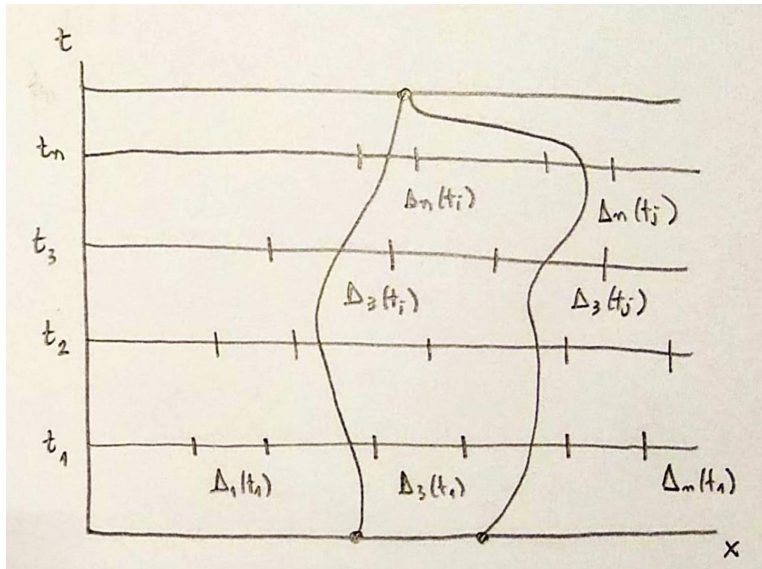 t
tn
Δn(ti) Δn(tj)
t3
Δ3(ti) Δ3(tj)
t2
t1
Δ1(t1) Δ3(t1) Δn(t1)
x